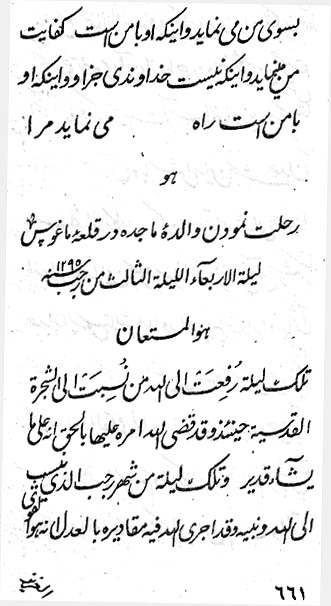 بسوی من می نماید و اینکه او با من است کفایت
من مینماید و اینکه نیست خداوندی جز او و اینکه او
با من است راه می نماید مرا
هو
رحلت نمودن والدهٔ ماجده در قلعهٔ ماغوس
لیلة الاربعاء اللیلة الثالث من رجب سنه ١٢٩٥
هو المستعان
تلک لیلة رُفِعَت الی الله من نُسبَت الی الشجرة
القدسیة حینئذ و قد قضی الله امره علیها بالحق انه علی ما
یشآء قدیر و تلک لیلة من شهر رجب الذی ینسب
الی الله و نبیه و قد اجری الله فیه مقادیره بالعدل انه هو القوی
٦٦١